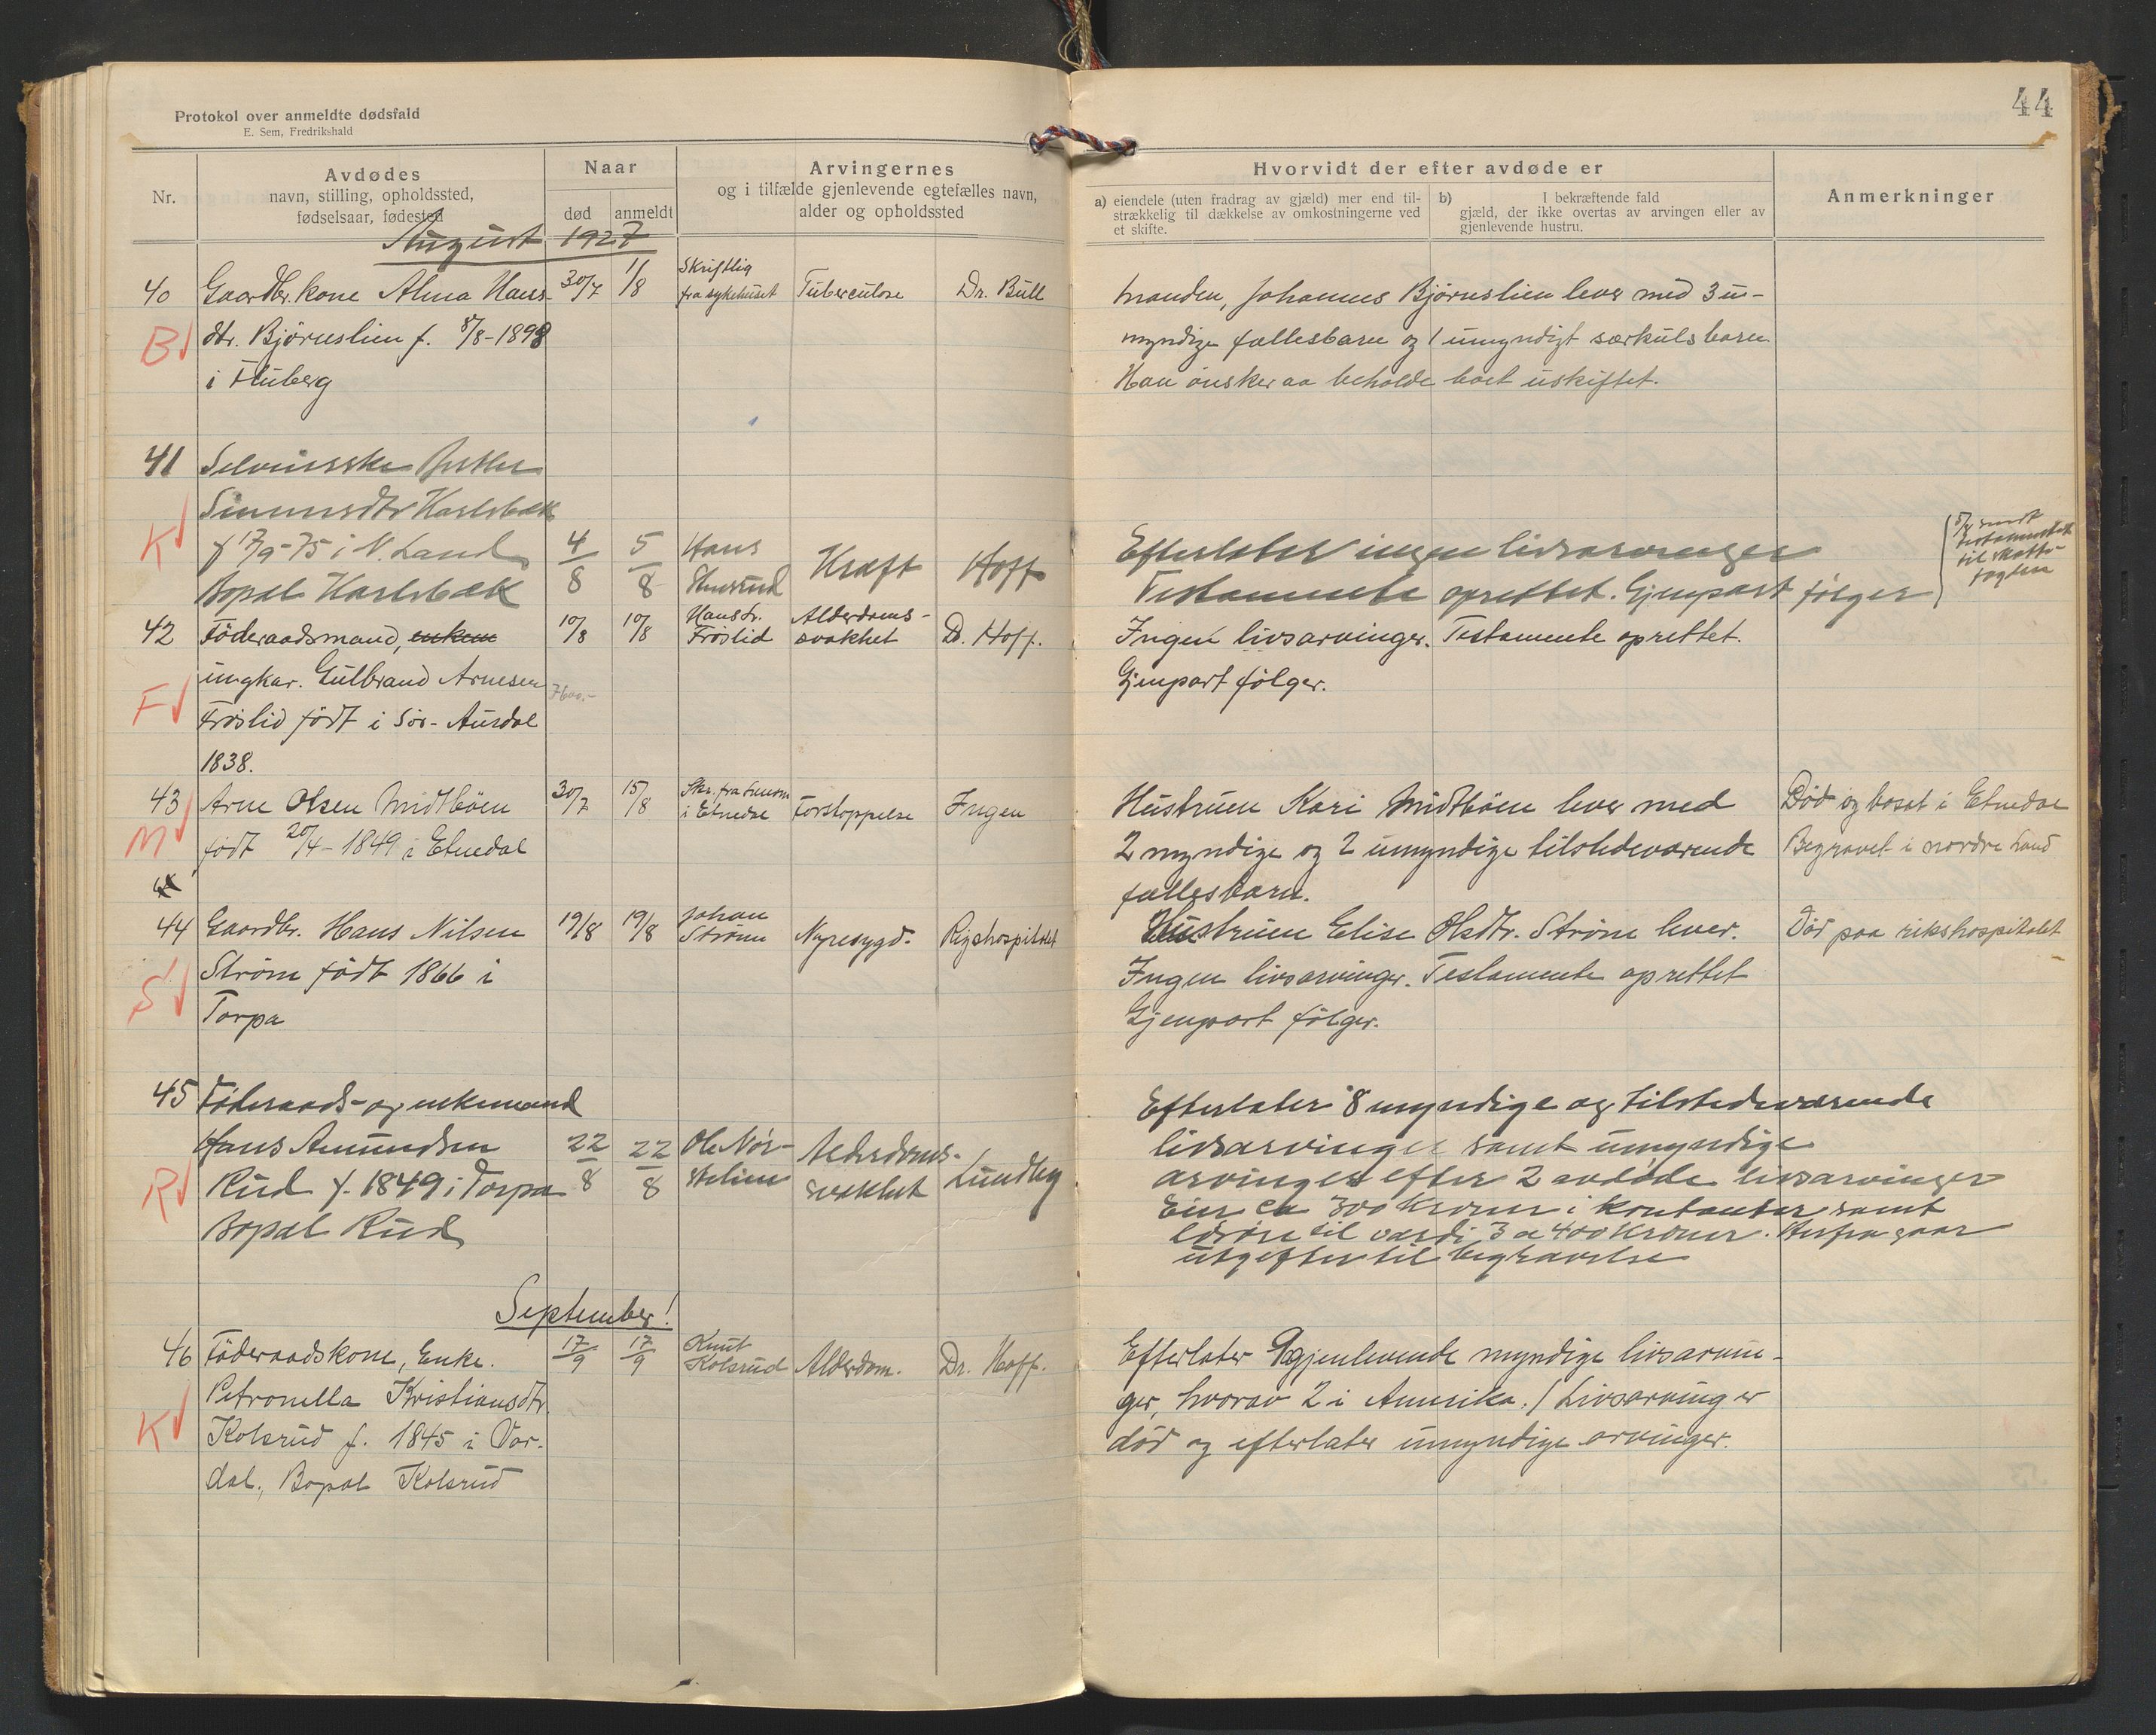 44
Protokol over anmeldte dødsfald
E. Sem, Fredrikshald
Nr.
Avdødes
navn, stilling, opholdssted,
fødselsaar, fødested
Naar
død
anmeldt
Arvingernes
og i tilfælde gjenlevende egtefælles navn,
alder og opholdssted
Hvorvidt der efter avdøde er
a) eiendele (uten fradrag av gjæld) mer end til-
strækkelig til dækkelse av omkostningerne ved
et skifte.
b) I bekræftende fald
gjæld, der ikke overtas av arvingen eller av
gjenlevende hustru.
Anmerkninger
August 1927
40 Gaardbr. kone Alma Hans- 30/7 1/8 Skriftlig fra sykehuset Tuberculose Dr. Bull
dtr. Bjørnslien f. 8/8-1898
B
i Fluberg
Manden, Johannes Bjørnslien lever med 3 u-
myndige fællesbarn og 1 umyndigt særkulsbarn
Han ønsker aa beholde boet uskiftet.
41 Selveierske
Simensdtr Karlsbæk
K
f 17/9-75 i N. Land 4/8 5/8 Hans Kraft Hoff
Bopæl Karlsbæk
Efterlater ingen livsarvinger
Testamente oprettet. Gjenpart følger
sendt
testamentet
til skatte-
fogden
42 Föderaadsmand, enkem 10/8 10/8 Hans Frøslid Alderdoms-svakhet Dr. Hoff.
ungkar. Gulbrand Arnesen
F
Frøslid födt i Sör-Aurdal
1838.
Ingen livsarvinger. Testamente oprettet.
Gjenpart følger.
43 Arne Olsen Midtböen 30/7 15/8 Skr. fra i Etnedal Forstoppelse Ingen
M
født 20/4-1849 i Etnedal
Hustruen Kari Midtböen lever med
2 myndige og 2 umyndige tilstedeværende
fællesbarn.
Död og bosat i Etnedal
Begravet i nordre Land
44 Gaardbr. Hans Nilsen 19/8 19/8 Johan Strøm Nyresygd. Rigshospitalet
Strøm født 1866 i
S
Torpa
Hustruen Elise Olsdtr. Strøm lever.
Ingen livsarvinger. Testamente oprettet
Gjenpart følger.
Död paa rikshospitalet
45 Föderaads- og enkemand
Hans Amundsen 22/8 22/8 Ole Nör- Alderdoms-svakhet Lundby
R
Rud f. 1849 i Torpa
Bopæl Rud
Efterlater 8 myndige og tilstedeværende
livsarvinger samt umyndige
arvinger efter 2 avdøde livsarvinger
Eier ca 300 kroner i kontanter samt
lösöre til værdi 3 a 400 kroner. Herfra gaar
utgifter til begravelse
September!
46 Föderaadskone, Enke. 17/9 17/9 Knut Kolsrud Alderdom. Dr. Hoff.
Petronella Kristiansdtr.
K
Kolsrud f. 1845 i Var-
dal, Bopæl Kolsrud
Efterlater 9 gjenlevende myndige livsarvin-
ger, hvorav 2 i Amerika. 1 Livsarving er
död og efterlater umyndige arvinger.